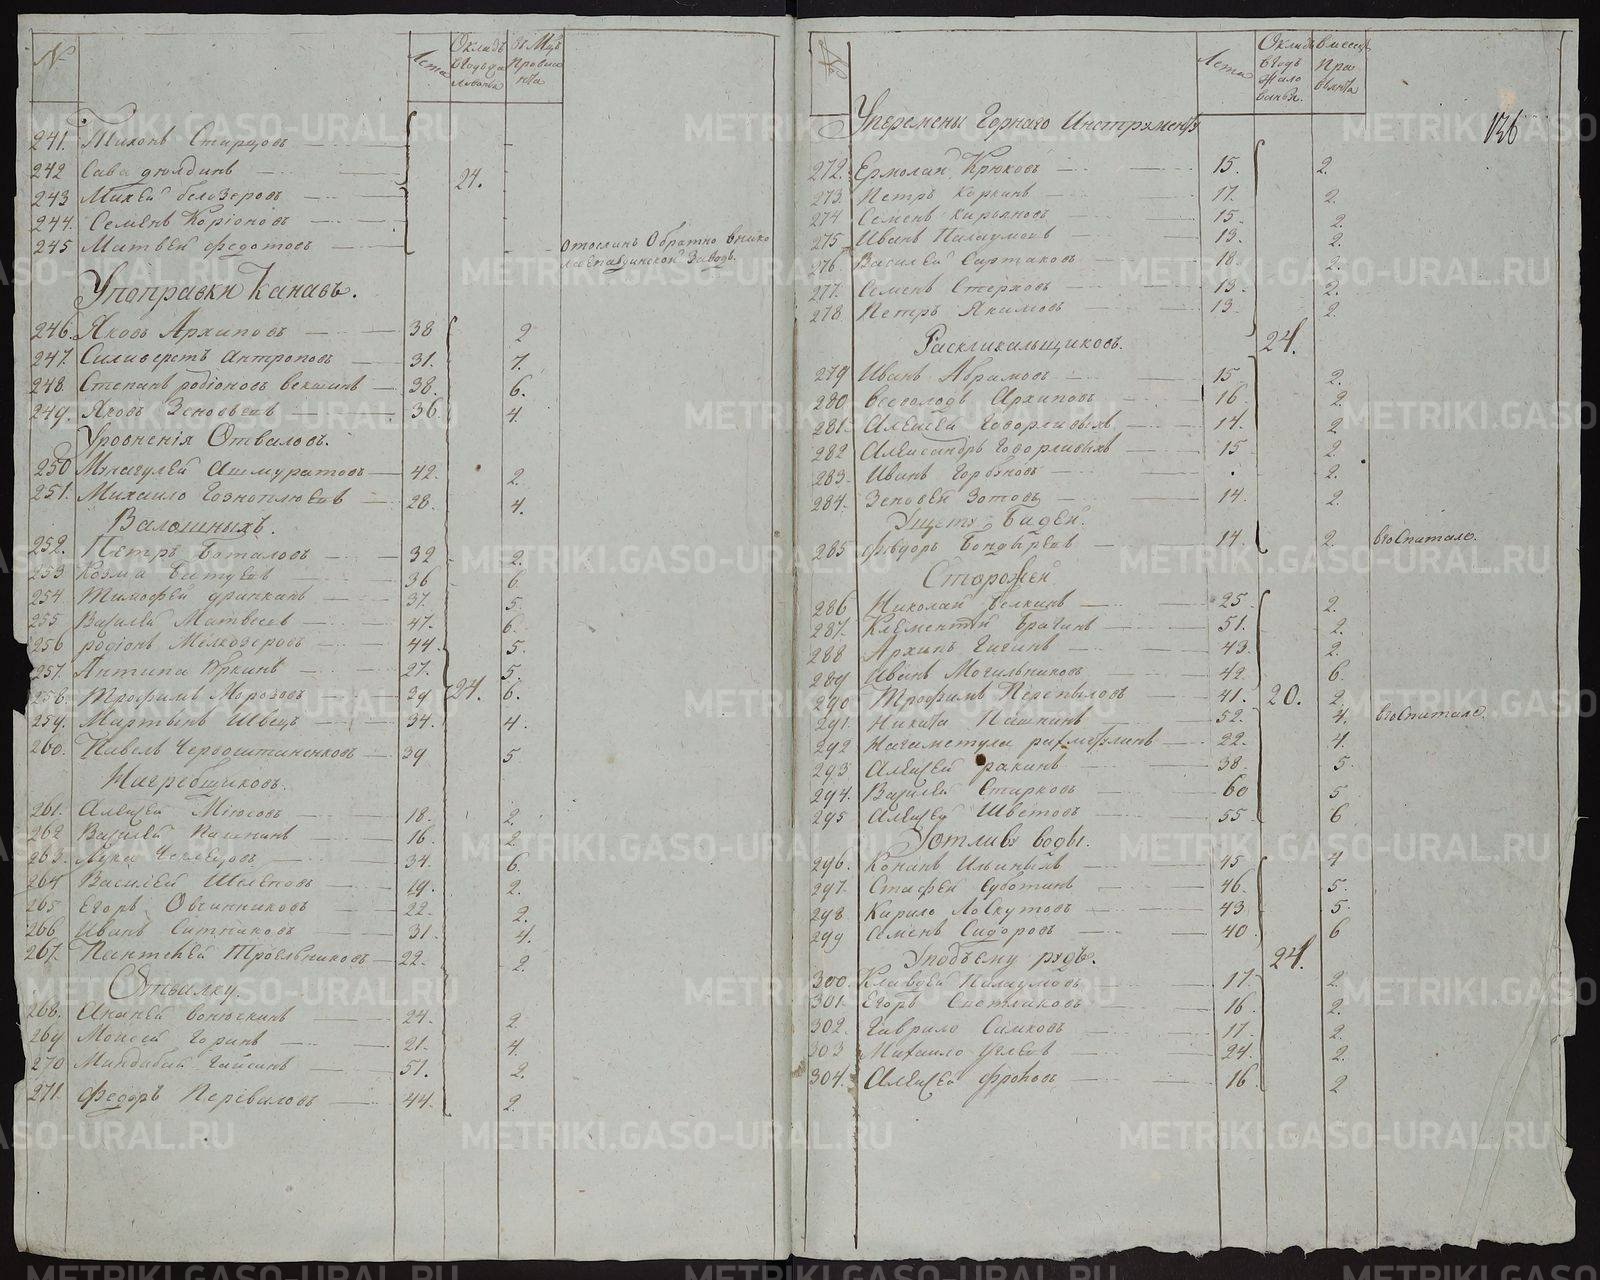 № Лета Окладъ в годъ жалованья в Мцъ провианта
241. Тихонъ Старцовъ
242 Сава
24.
243 Михей белозеровъ
244. Семенъ Коріоновъ
245 Матвей федотовъ
отосланъ обратно в нико
лаепавдинской Заводъ.
У поправки Канавъ.
246. Яковъ Архиповъ 38 2
247. Силиверстъ антроповъ 31. 7.
248. Степанъ родіоновъ векшинъ 38. 6.
249. Яковъ Зеновьевъ 36 4.
Уровненія Отваловъ.
250 Ашмуратовъ 42. 2.
251. Михаило 28. 4.
252. Петръ Баталовъ 32 2.
253 Козма 36 6.
254 Тимофей 37. 5.
255 Василей Матвеевъ 47. 6.
256 родіонъ Мелкозеровъ 44. 5.
257. Антипа Юркинъ 27. 5.
258. Трофимъ Морозовъ 39 24. 6.
259. Мартынъ Швецъ 34. 4.
260. Павелъ Червоштаненковъ 39 5.
Нагребщиковъ.
261. Алексей 18. 2.
262 Василей Пашнинъ 16 2
263. Лука 34. 6.
264 Василей Шелеповъ 19. 2.
265 Егоръ Овчинниковъ 22 2.
266 Иванъ Ситниковъ 31. 4.
267. Пантелей 22. 2.
268. Ананей 24. 2.
269 Моисей Горинъ 21. 4.
270 51. 2.
271. федоръ Переваловъ 44. 2.
№ Лета Окладъ в годъ жалованья в месецъ правианта
136
У перемены Горнаго Инструмента
272. Ермолай Крюковъ 15. 2.
273. Петръ Коркинъ 17. 2.
274 Семенъ Кирьяновъ 15. 2.
275 Иванъ Палаумовъ 13. 2.
276 Василей Сартаковъ 18. 2.
277. Семенъ Стерховъ 13. 2.
278. Петръ Якимовъ 13. 2.
Раскликальщиковъ. 24.
279 Иванъ Абрамовъ 15 2.
280 всеволодъ Архиповъ 16 2.
281. Алексей Говорливыхъ 14. 2
282 Александръ Говорливыхъ 15 2.
283. Иванъ Горбуновъ 2.
284. Зеновей Зотовъ 14. 2.
У щету Бадей.
285 федоръ 14. 2. в госпитале.
Сторожей
286 Николай Белкинъ 25 2.
287. Клементий Брагинъ 51. 2.
288 Архипъ Гигинъ 43. 2.
289 Иванъ Могильниковъ 42. 6.
290 Трофимъ Перепыловъ 41. 20. 2.
291. Никита Пашкинъ 52. 4. в госпитале.
292 22. 4.
293 Алексей ракинъ 38. 5
294. Василей Старковъ 60 5
295 Алексей Шветовъ 55 6
У отливу воды.
296. Конанъ Ильиныхъ 45 4
297. Суботинъ 46. 5.
298 Кирило Лоскутовъ 43 5.
299 Семенъ Сидоровъ 40. 6
У подъему рудъ. 24.
300. Клавдей Палаумовъ 17. 2
301. Егоръ 16 2.
302. Гаврило Симковъ 17. 2
303 Михаило 24. 2.
304. Алексей 16 2